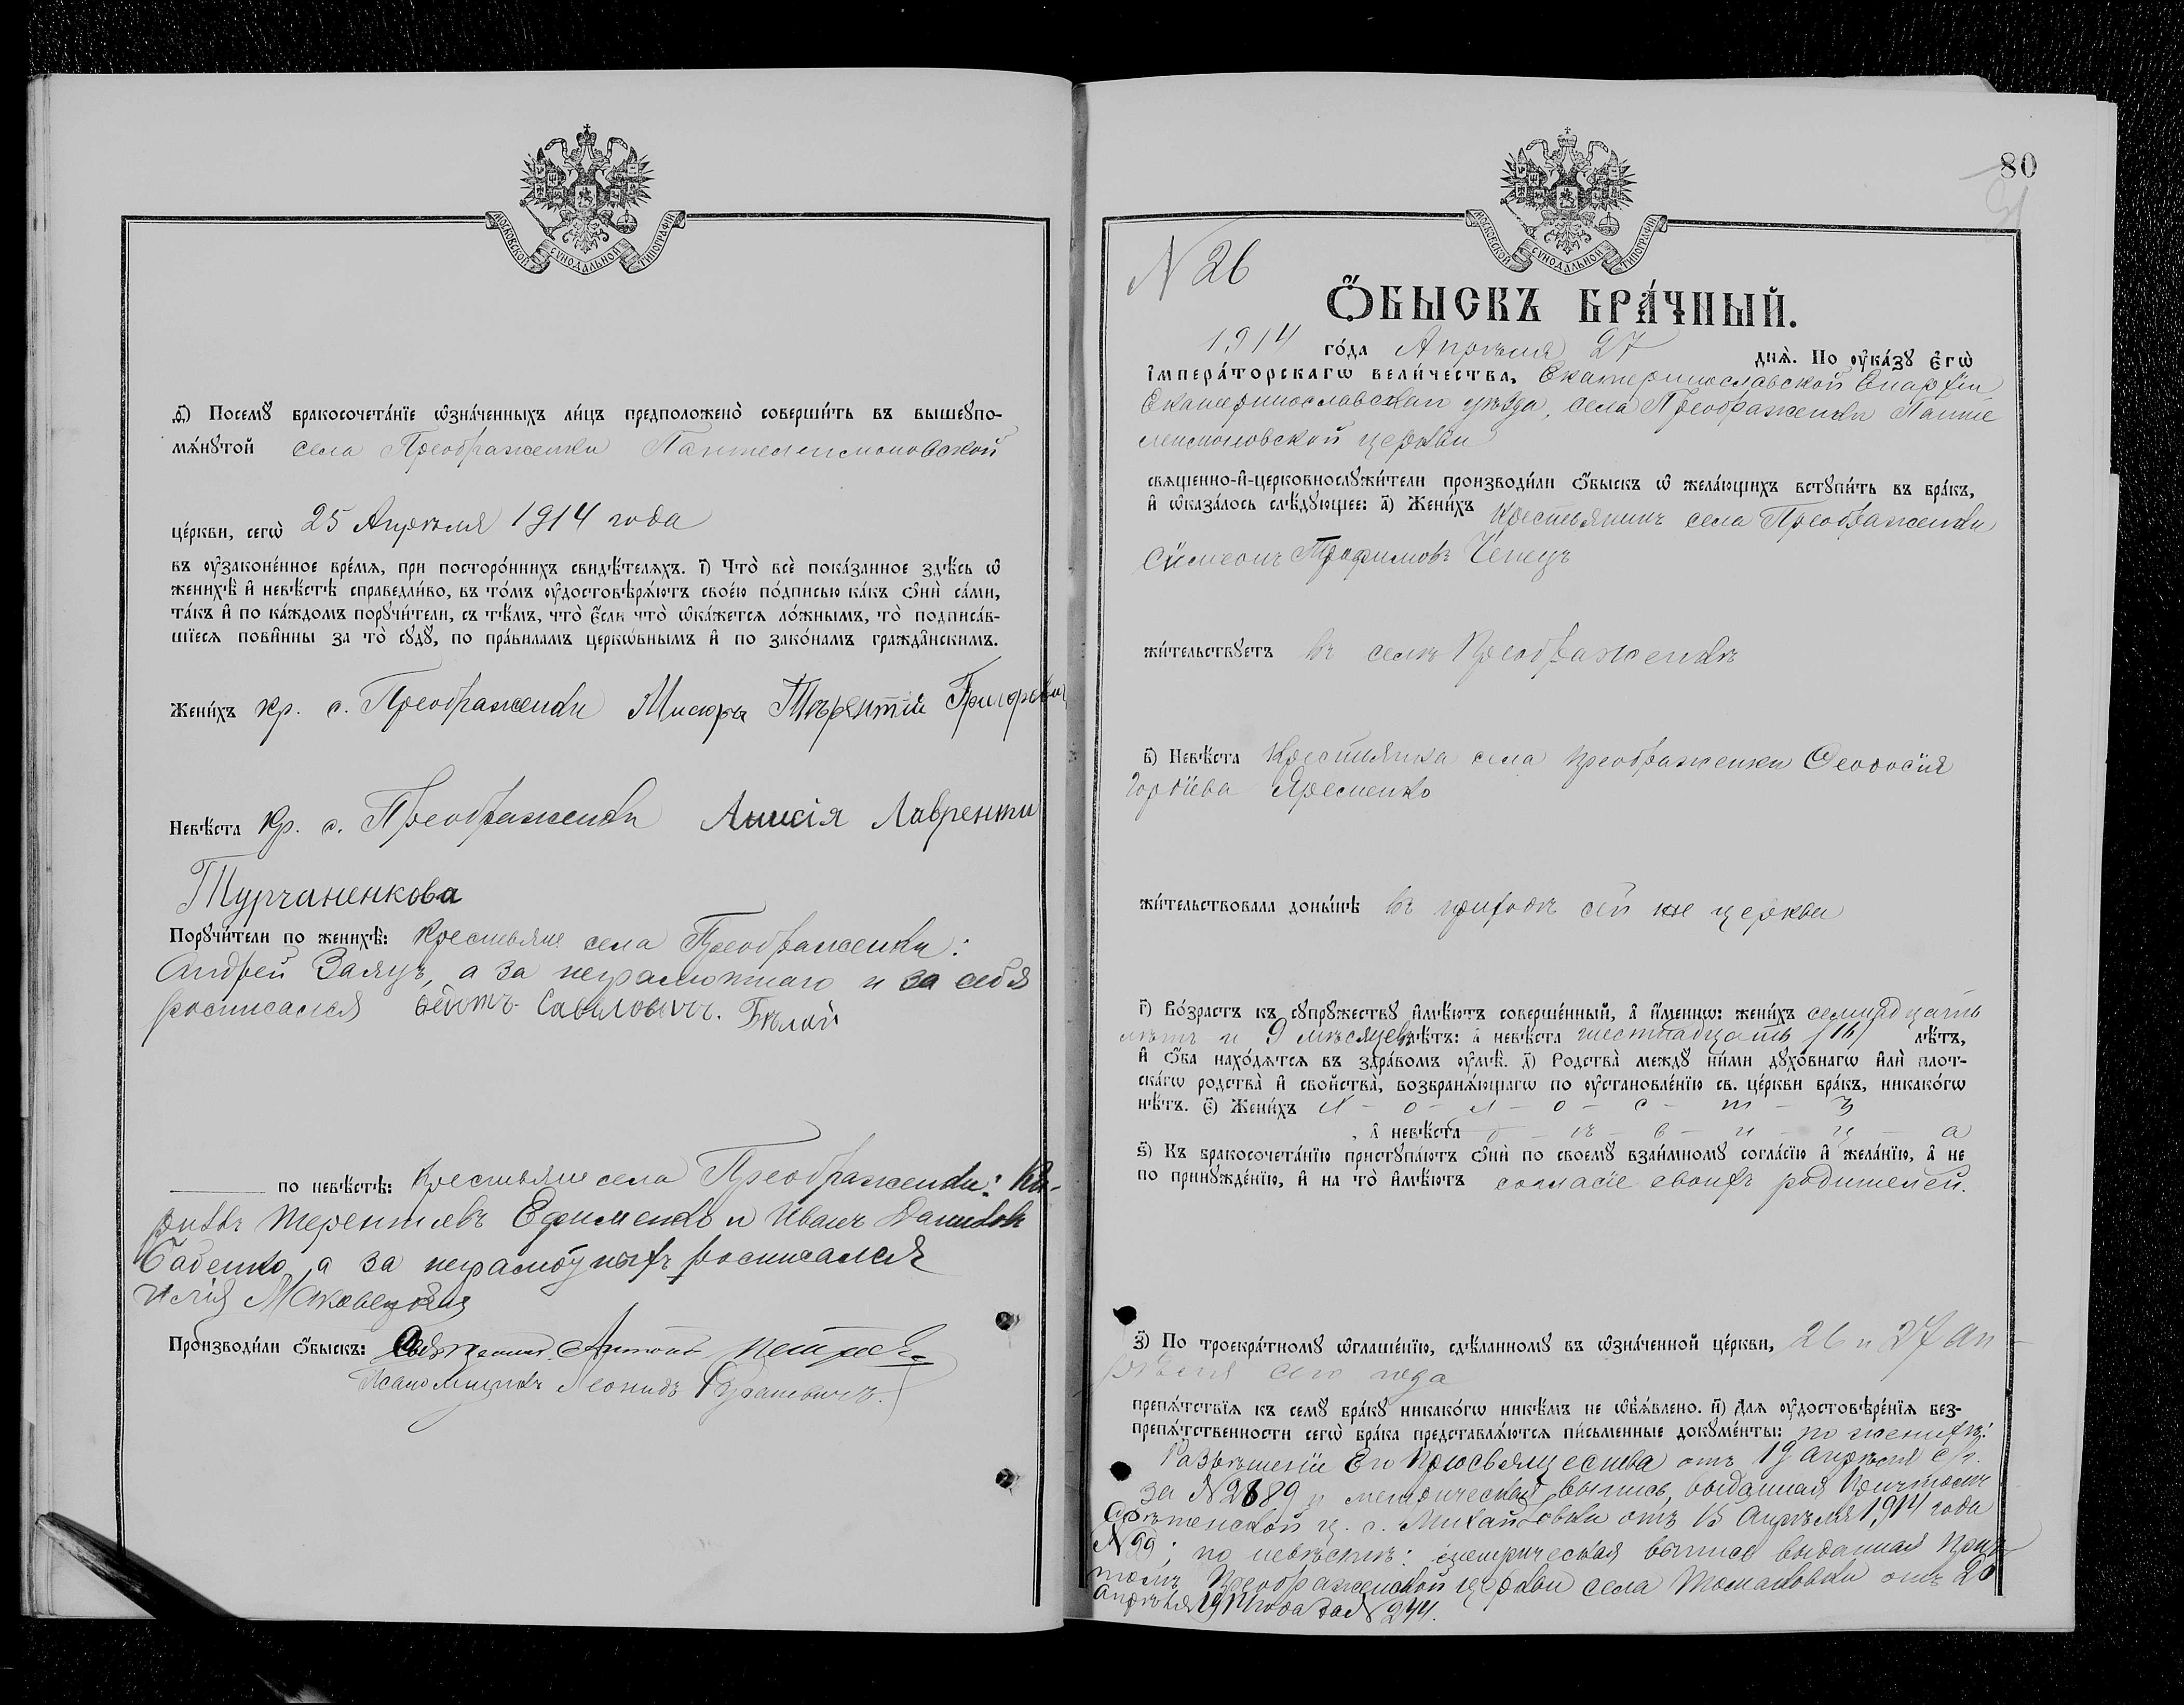 МОСКОВСКОЙ СѴНОДАЛЬНОЙ ТИПОГРАФІИ
д҃і) Посемꙋ̀ бракосочета́нїе ѡ҆зна́ченныхъ ли́цъ предположено̀ соверши́ть въ вышеꙋпо-
мѧ́нꙋтой села Преображенки Пантелеимоновской
це́ркви, сегѡ̀ 25 Апрѣля 1914 года
въ ᲂу҆зако́ненное вре́мѧ, при посторо́ннихъ свидѣ́телѧхъ. і҃) Что̀ всѐ пока́занное здѣ́сь ѡ҆
женихѣ̀ и҆ невѣ́стѣ справедли́во, въ то́мъ ᲂу҆достовѣрѧ́ютъ свое́ю по́дписью ка́къ ѻ҆нѝ са́ми,
та́къ и҆ по ка́ждомъ порꙋчи́тели, съ тѣ́мъ, что̀ є҆́сли что̀ ѡ҆ка́жетсѧ ло́жнымъ, то̀ подписа́в-
шїесѧ пови́нны за то̀ сꙋдꙋ̀, по пра́виламъ церко́внымъ и҆ по зако́намъ гражда́нскимъ.
Жени́хъ кр. с. Преображенки Мисюра Терентій Григорьевич
Невѣ́ста Кр. с. Преображенки Анисія Лавренти
Турчаненкова
Порꙋчи́тели по женихѣ̀: Крестьяне села Преображенки:
Андрей Заяцъ, а за неграмотнаго и за себя
росписался Савиловичъ. Бѣлай
по невѣ́стѣ: Крестьяне села Преображенки: Ки-
рикъ Терентьевъ Ефименко и Иванъ Данилов
Бабенко, а за неграмотныхъ росписался
Илія Маковецкій
Производи́ли ѻ҆́быскъ: Священникъ Антоній
Псаломщикъ Леонидъ
80
МОСКОВСКОЙ СѴНОДАЛЬНОЙ ТИПОГРАФІИ
N 26
Ѻ҆́БЫСКЪ БРА́ЧНЫЙ.
1914 го́да Апрѣля 27 днѧ̀. По ᲂу҆ка́зꙋ є҆гѡ̀
і҆мпера́торскагѡ вели́чества, Екатеринославской Епархіи
Екатеринославскаго уѣзда, села Преображенки Панте
леимоновской церкви
свѧще́нно-и҆-церковнослꙋжи́тели производи́ли ѻ҆́быскъ ѡ҆ жела́ющихъ встꙋпи́ть въ бра́къ,
и҆ ѡ҆каза́лось слѣ́дꙋющее: а҃) Жени́хъ Крестьянинъ села Преображенки
Сімеонъ Трофимовъ Чепецъ
жи́тельствꙋетъ въ селѣ Преображенкѣ
в҃) Невѣ́ста Крестьянка села Преображенки Ѳеодосія
Гордіева Яременко
жи́тельствовала доны́нѣ въ приходѣ сей же церкви
г҃) Во́зрастъ къ сꙋпрꙋ́жествꙋ и҆мѣ́ютъ соверше́нный, а҆ и҆́меннѡ: жени́хъ семнадцать
лѣтъ и 9 мѣсяцевъ лѣ́тъ: а҆ невѣ́ста шестнадцать (16) лѣ́тъ,
и҆ ѻ҆́ба нахо́дѧтсѧ въ здра́вомъ ᲂу҆мѣ̀. д҃) Родства̀ междꙋ̀ ни́ми дꙋхо́внагѡ и҆лѝ плот-
ска́гѡ родства̀ и҆ свойства̀, возбранѧ́ющагѡ по ᲂу҆становле́нїю св. це́ркви бра́къ, никако́гѡ
нѣ́тъ. є҃) Жени́хъ х - о - л - о - с - т - ъ
, а҆ невѣ́ста д - ѣ - в - и - ц - а
ѕ҃) Къ бракосочета́нїю пристꙋпа́ютъ ѻ҆нѝ по своемꙋ̀ взаи́мномꙋ согла́сїю и҆ жела́нїю, а҆ не
по принꙋжде́нїю, и҆ на то̀ и҆мѣ́ютъ согласіе своихъ родителей.
з҃) По троекра́тномꙋ ѡ҆глаше́нїю, сдѣ́ланномꙋ въ ѡ҆зна́ченной це́ркви, 26 и 27 Ап-
рѣля сего года
препѧ́тствїѧ къ семꙋ̀ бра́кꙋ никако́гѡ никѣ́мъ не ѡ҆б̾ѧ́влено. и҃) Длѧ ᲂу҆достовѣре́нїѧ без-
препѧ́тственности сегѡ̀ бра́ка представлѧ́ютсѧ пи́сьменные докꙋме́нты: по женихѣ:
Разрѣшеніе Его Преосвященства отъ 19 апрѣля с/г.
за N 2889 и метрическая выпись, выданная Причтомъ
Срѣтенской ц. с. Михайловки отъ 15 Апрѣля 1914 года
N 99; по невѣстѣ: метрическая выпись выданная При-
томъ Преображенской церкви села Томаковки отъ 20
Апрѣля 1914 года за N 244.